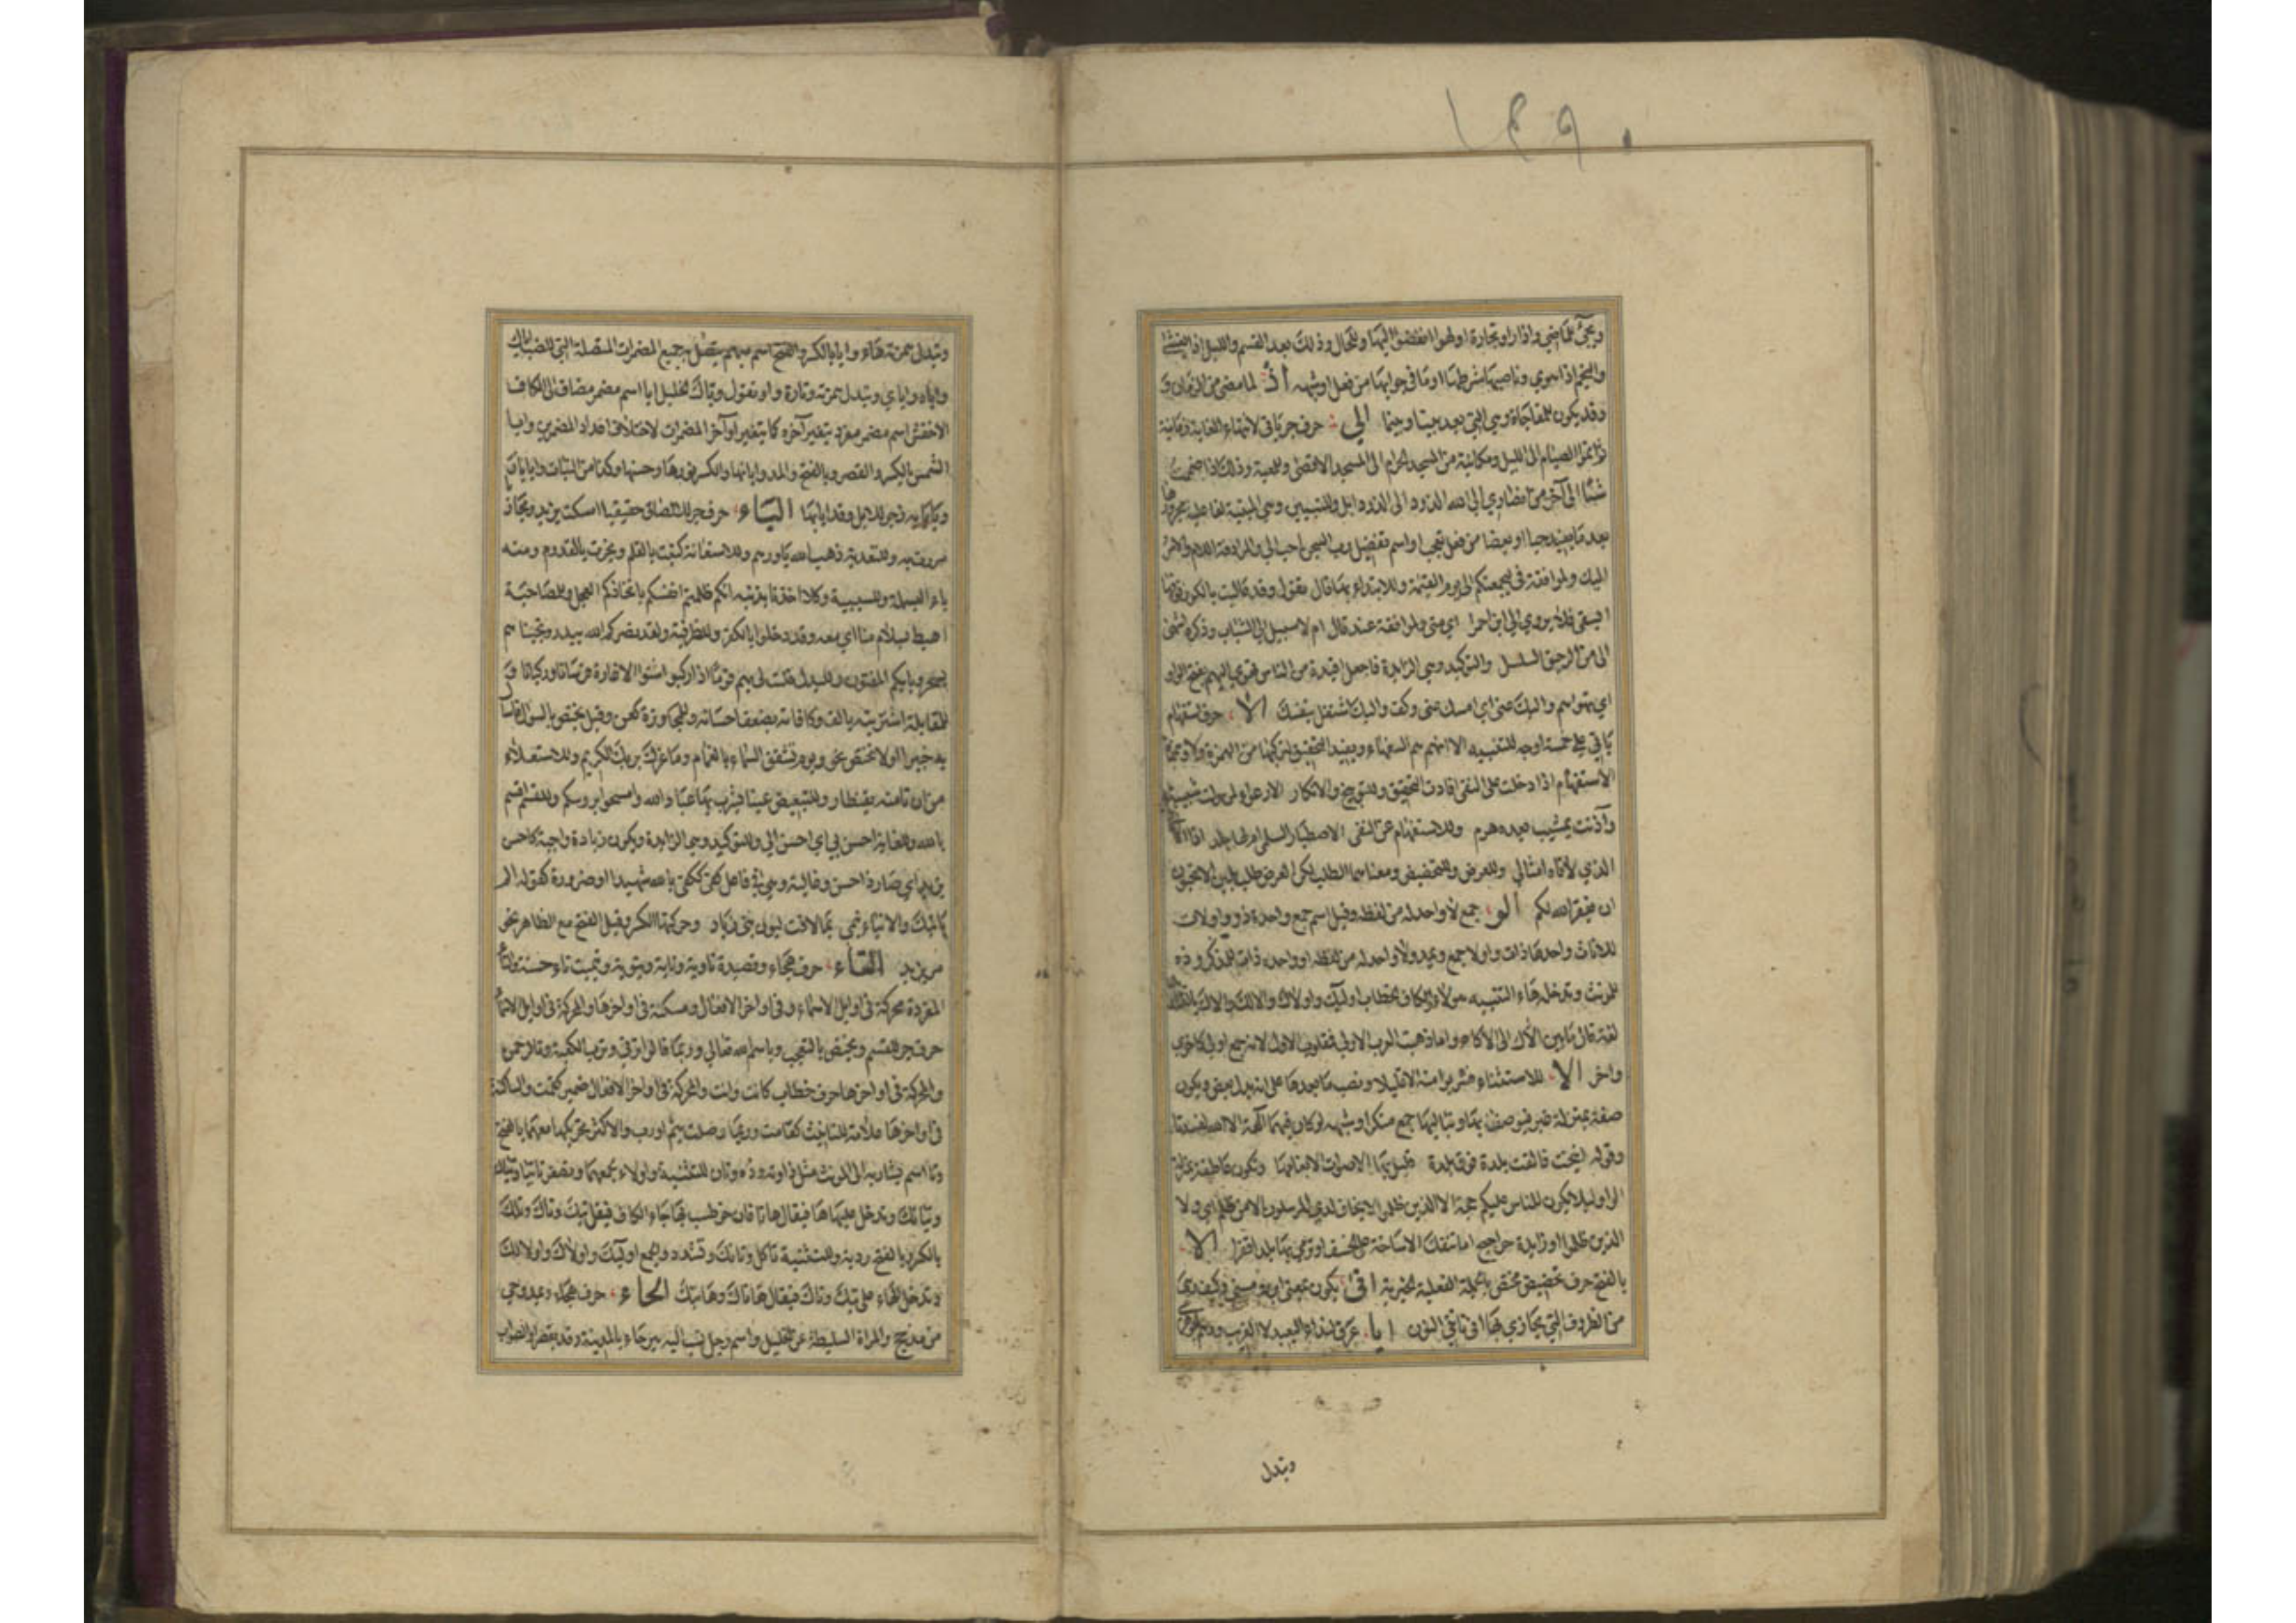 ١٤٩٠
ويجئ للماضي واذا راوا تجارة او لهوا انفضوا اليها وللحال وذلك بعد القسم والليل اذا يغشى
والنجم اذا هوي وناصبها شرطها او ما في جوابها من فعل او شبهه اذ لما مضى من الزمان و
وقد يكون للمفاجاة وهي التي بعد بينا وبينما الي حرف جر ياتي لانتهاء الغاية زمانية
ثم اتموا الصيام الى الليل ومكانية من المسجد الحرام الى المسجد الاقصى وللمعية وذلك اذا ضممت
شيئا الى آخر من انصاري الى الله الذود الى الذود ابل وللتبيين وهي المبينة لفاعلية مجرورها
بعد ما يفيد حبا او بغضا من فعل تعجب او اسم تفضيل رب السجن احب الي ولمرادفة اللام والامر
اليك ولموافقة في ليجمعنكم الى يوم القيمة وللابتداء بها قال تقول وقد عاليت بالكور فوقها
ايسقى فلا يروي الي ابن احمرا اي مني ولموافقة عند قال ام لا سبيل الى الشباب وذكره اشهى
الى من الرحيق السلسل والتوكيد وهي الزايدة فاجعل افئدة من الناس تهوي اليهم بفتح الواو
اي تهواهم واليك عني اي امسك عني وكف واليك اشتغل بنفسك الا حرف استفهام
ياتي على خمسة اوجه للتنبيه الا انهم هم السفهاء ويفيد التحقيق لتركبها من الهمزة ولا وهمزة
الاستفهام اذا دخلت على النفي افادت التحقيق وللتوبيخ والانكار الا ارعواء لمن ولت شبيبته
وآذنت بمشيب بعده هرم وللاستفهام عن النفي الا اصطبار لسلمى ام لها جلد اذا الاقي
الذي لاقاه امثالي وللعرض وللتحضيض ومعناهما الطلب لكن العرض طلب بلين الا تحبون
ان يغفر الله لكم الو جمع لا واحد له من لفظه وقيل اسم جمع واحده ذو واولات
للاناث واحدها ذات واولا جمع ويمد ولا واحد له من لفظه او واحده ذا للمذكر وذه
للمونث وتدخله هاء التنبيه هولاء والكاف للخطاب اوليك واولاك والالك
لغة قال ما بين الالاك الى الالاكا واما ذهبت العرب الاولى فمقلوب الاول لانه جمع اولى كاخرى
واخر الا للاستثناء فشربوا منه الا قليلا ونصب ما بعدها على انه بدل بعض ويكون
صفة بمنزلة غير فيوصف بها وبتاليها جمع منكر او شبهه لو كان فيهما آلهة الا الله لفسدتا
وقوله انيخت فالقت بلدة فوق بلدة قليل بها الاصوات الا بغامها وتكون عاطفة بمنزلة
الواو ليلا يكون للناس عليكم حجة الا الذين ظلموا لا يخاف لدي المرسلون الا من ظلم اي ولا
الذين ظلموا او زايدة حراجيج ما تنفك الا مناخة على الخسف او نرمي بها بلدا قفرا الا
بالفتح حرف تحضيض مختص بالجملة الفعلية الخبرية انى يكون بمعنى اين ومتى وكيف وهي
من الظروف التي يجازي بها انى تاتني ايا حرف لنداء البعيد لا القريب
وتبدل
وتبدل همزته هاء وايا بالكسر والفتح اسم مبهم يتصل به جميع المضمرات المتصلة التي للنصب اياك
واياه واياي وتبدل همزته هاء وتارة واوا تقول وياك الخليل ايا اسم مضمر مضاف الى الكاف
الاخفش اسم مضمر مفرد يتغير آخره كما يتغير اواخر المضمرات لاختلاف اعداد المضمرين وايا
الشمس بالكسر والقصر وبالفتح والمد واياتها بالكسر نورها وحسنها وكذا من النبات وايايا
وياياه زجر للابل وقد ايا بها الباء حرف جر للالصاق حقيقيا امسكت بزيد ومجازا
مررت به وللتعدية ذهب الله بنورهم وللاستعانة كتبت بالقلم ونجرت بالقدوم ومنه
باء البسملة وللسببية وكلا اخذنا بذنبه انكم ظلمتم انفسكم باتخاذكم العجل وللمصاحبة
اهبط بسلام منا اي معه وقد دخلوا بالكفر وللظرفية ولقد نصركم الله ببدر ونجيناهم
بسحر وبايكم المفتون وللبدل فليت لي بهم قوما اذا ركبوا شنوا الاغارة فرسانا وركبانا و
للمقابلة اشتريته بالف وكافاته بضعف احسانه وللمجاوزة كعن وقيل يختص بالسؤال فاسأل
به خبيرا اولا تختص نحو ويوم تشقق السماء بالغمام وما غرك بربك الكريم وللاستعلاء
من ان تامنه بقنطار وللتبعيض عينا يشرب بها عباد الله وامسحوا بروسكم وللقسم اقسم
بالله وللغاية احسن بي اي احسن الي وللتوكيد وهي الزايدة ويكون زيادة واجبة كاحسن
بزيد اي صار ذا حسن وغالبة وهي في فاعل كفى ككفى بالله شهيدا وضرورة كقوله الم
ياتيك والانباء تنمي بما لاقت لبون بني زياد وحركتها الكسر وقيل الفتح مع الظاهر نحو
مر بزيد التاء حرف هجاء وقصيدة تاوية وتايية وتيوية وتييت تاء حسنة والتاء
المفردة محركة في اوايل الاسماء وفي اواخر الافعال ومسكنة في اواخرها والمحركة في اوايل الاسماء
حرف جر للقسم ويختص بالتعجب وباسم الله تعالى وربما قالوا تربي وترب الكعبة وتالرحمن
والمحركة في اواخرها حرف خطاب كانت وانت والمحركة في اواخر الافعال ضمير كقمت والساكنة
في اواخرها علامة للتانيث كقامت وربما وصلت بثم ورب والاكثر تحريكها معهما بالفتح
وتا اسم يشار به الى المونث مثل ذا وته وذه وتان للتثنية واولاء جمعها وتصغير تا تيا وتياك
وتيالك وتدخل عليها ها فيقال هاتا فان خوطب بها جاء الكاف فيقل تيك وتاك وتلك
بالكسر وبالفتح ردية وللتثنية تانك وتانك وتشدد والجمع اوليك واولاك واولالك
وتدخل الهاء على تيك وتاك فيقال هاتاك وهاتيك الحاء حرف هجاء ويمد وحي
من مذحج والمراة السليطة عن الخليل واسم رجل نسب اليه بير حاء بالمدينة وقد يقصر او الصواب